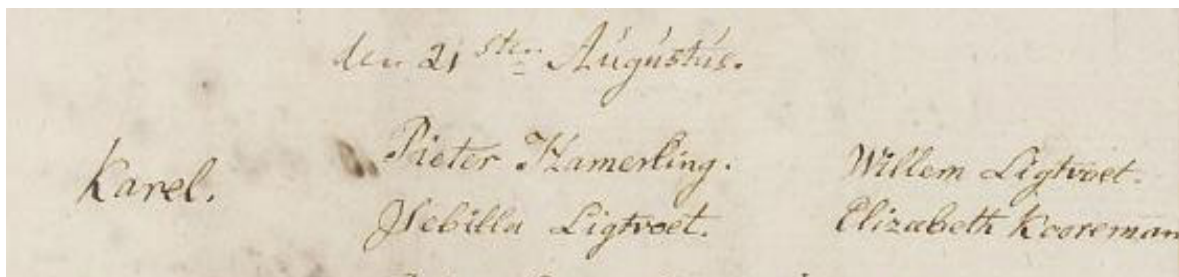 den 21 sten Augustus.
Karel.
Pieter Kamerling.
Willem Ligtvoet.
Isebilla Ligtvoet.
Elizabeth Kooreman